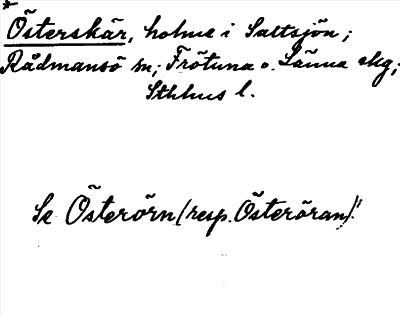 Österskär, holme i Saltsjön;
Rådmansö sn; Frötuna o. Länna skg;
Sthlms l.
Se Österörn (resp. Österöran)!